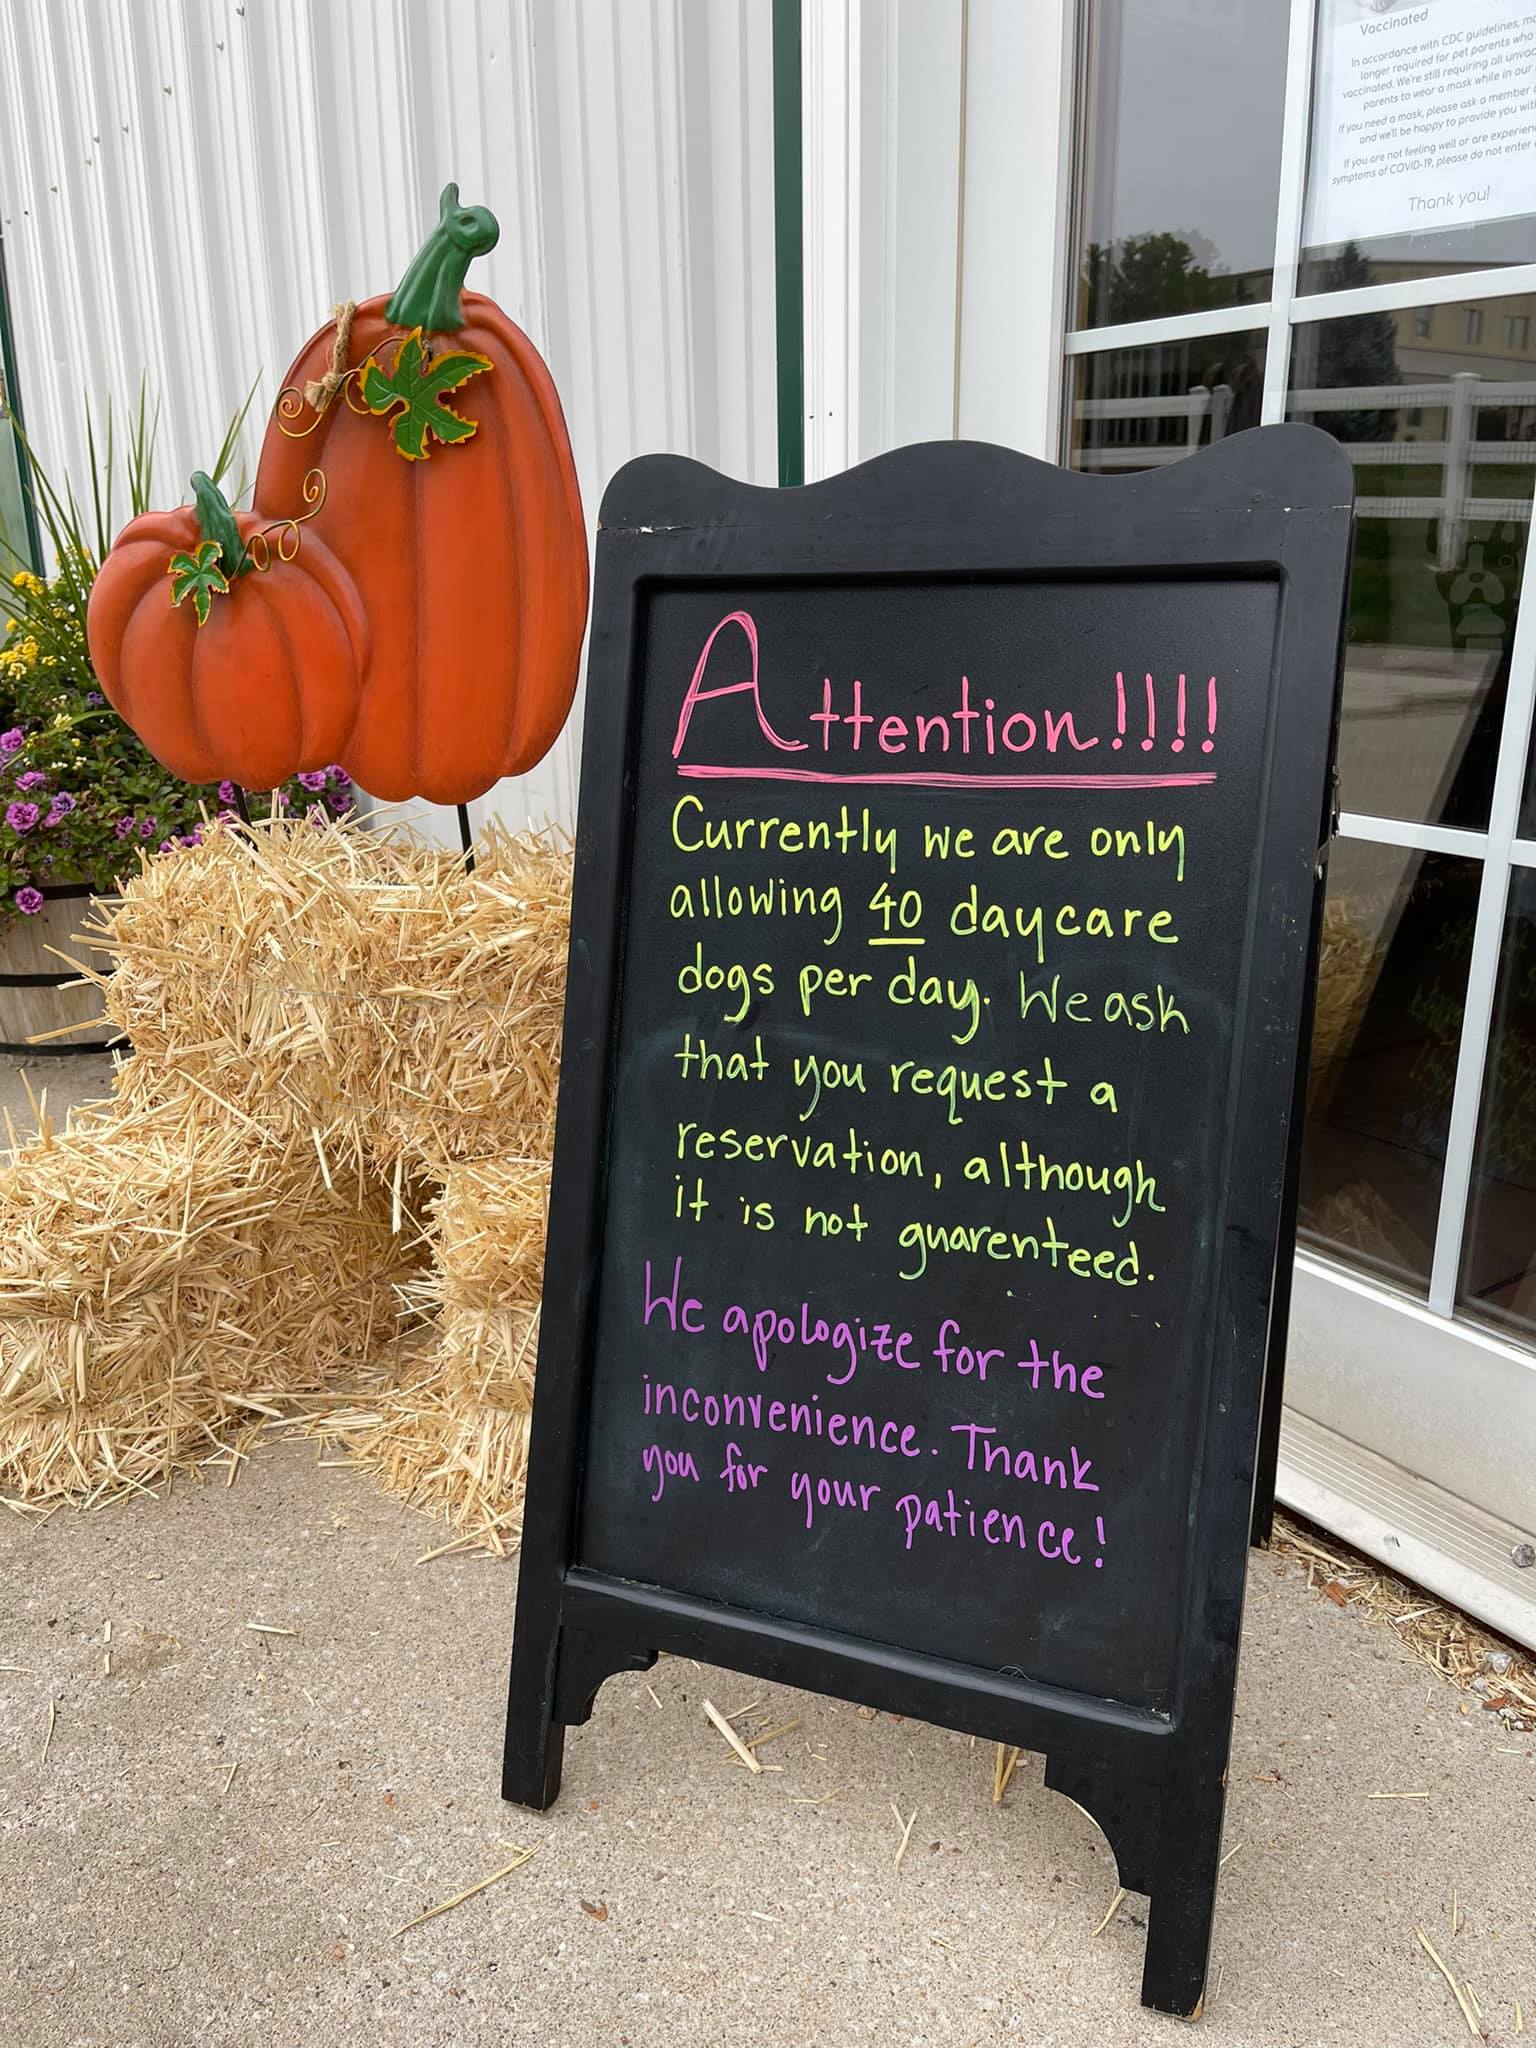 Vaccinated
In accordance with CDC guidelines,
longer required for pet parents who
vaccinated. We're still requiring all
parents to wear a mask while in our
If you need a mask, please ask a member
and we'll be happy to provide you
If you are not feeling well or are
symptoms of COVID-19, please do not enter
Thank you!
Attention!!!!
Currently we are only
allowing 40 daycare
dogs per day. We ask
that you request a
reservation, although
it is not guarenteed.
We apologize for the
inconvenience. Thank
you for your patience!